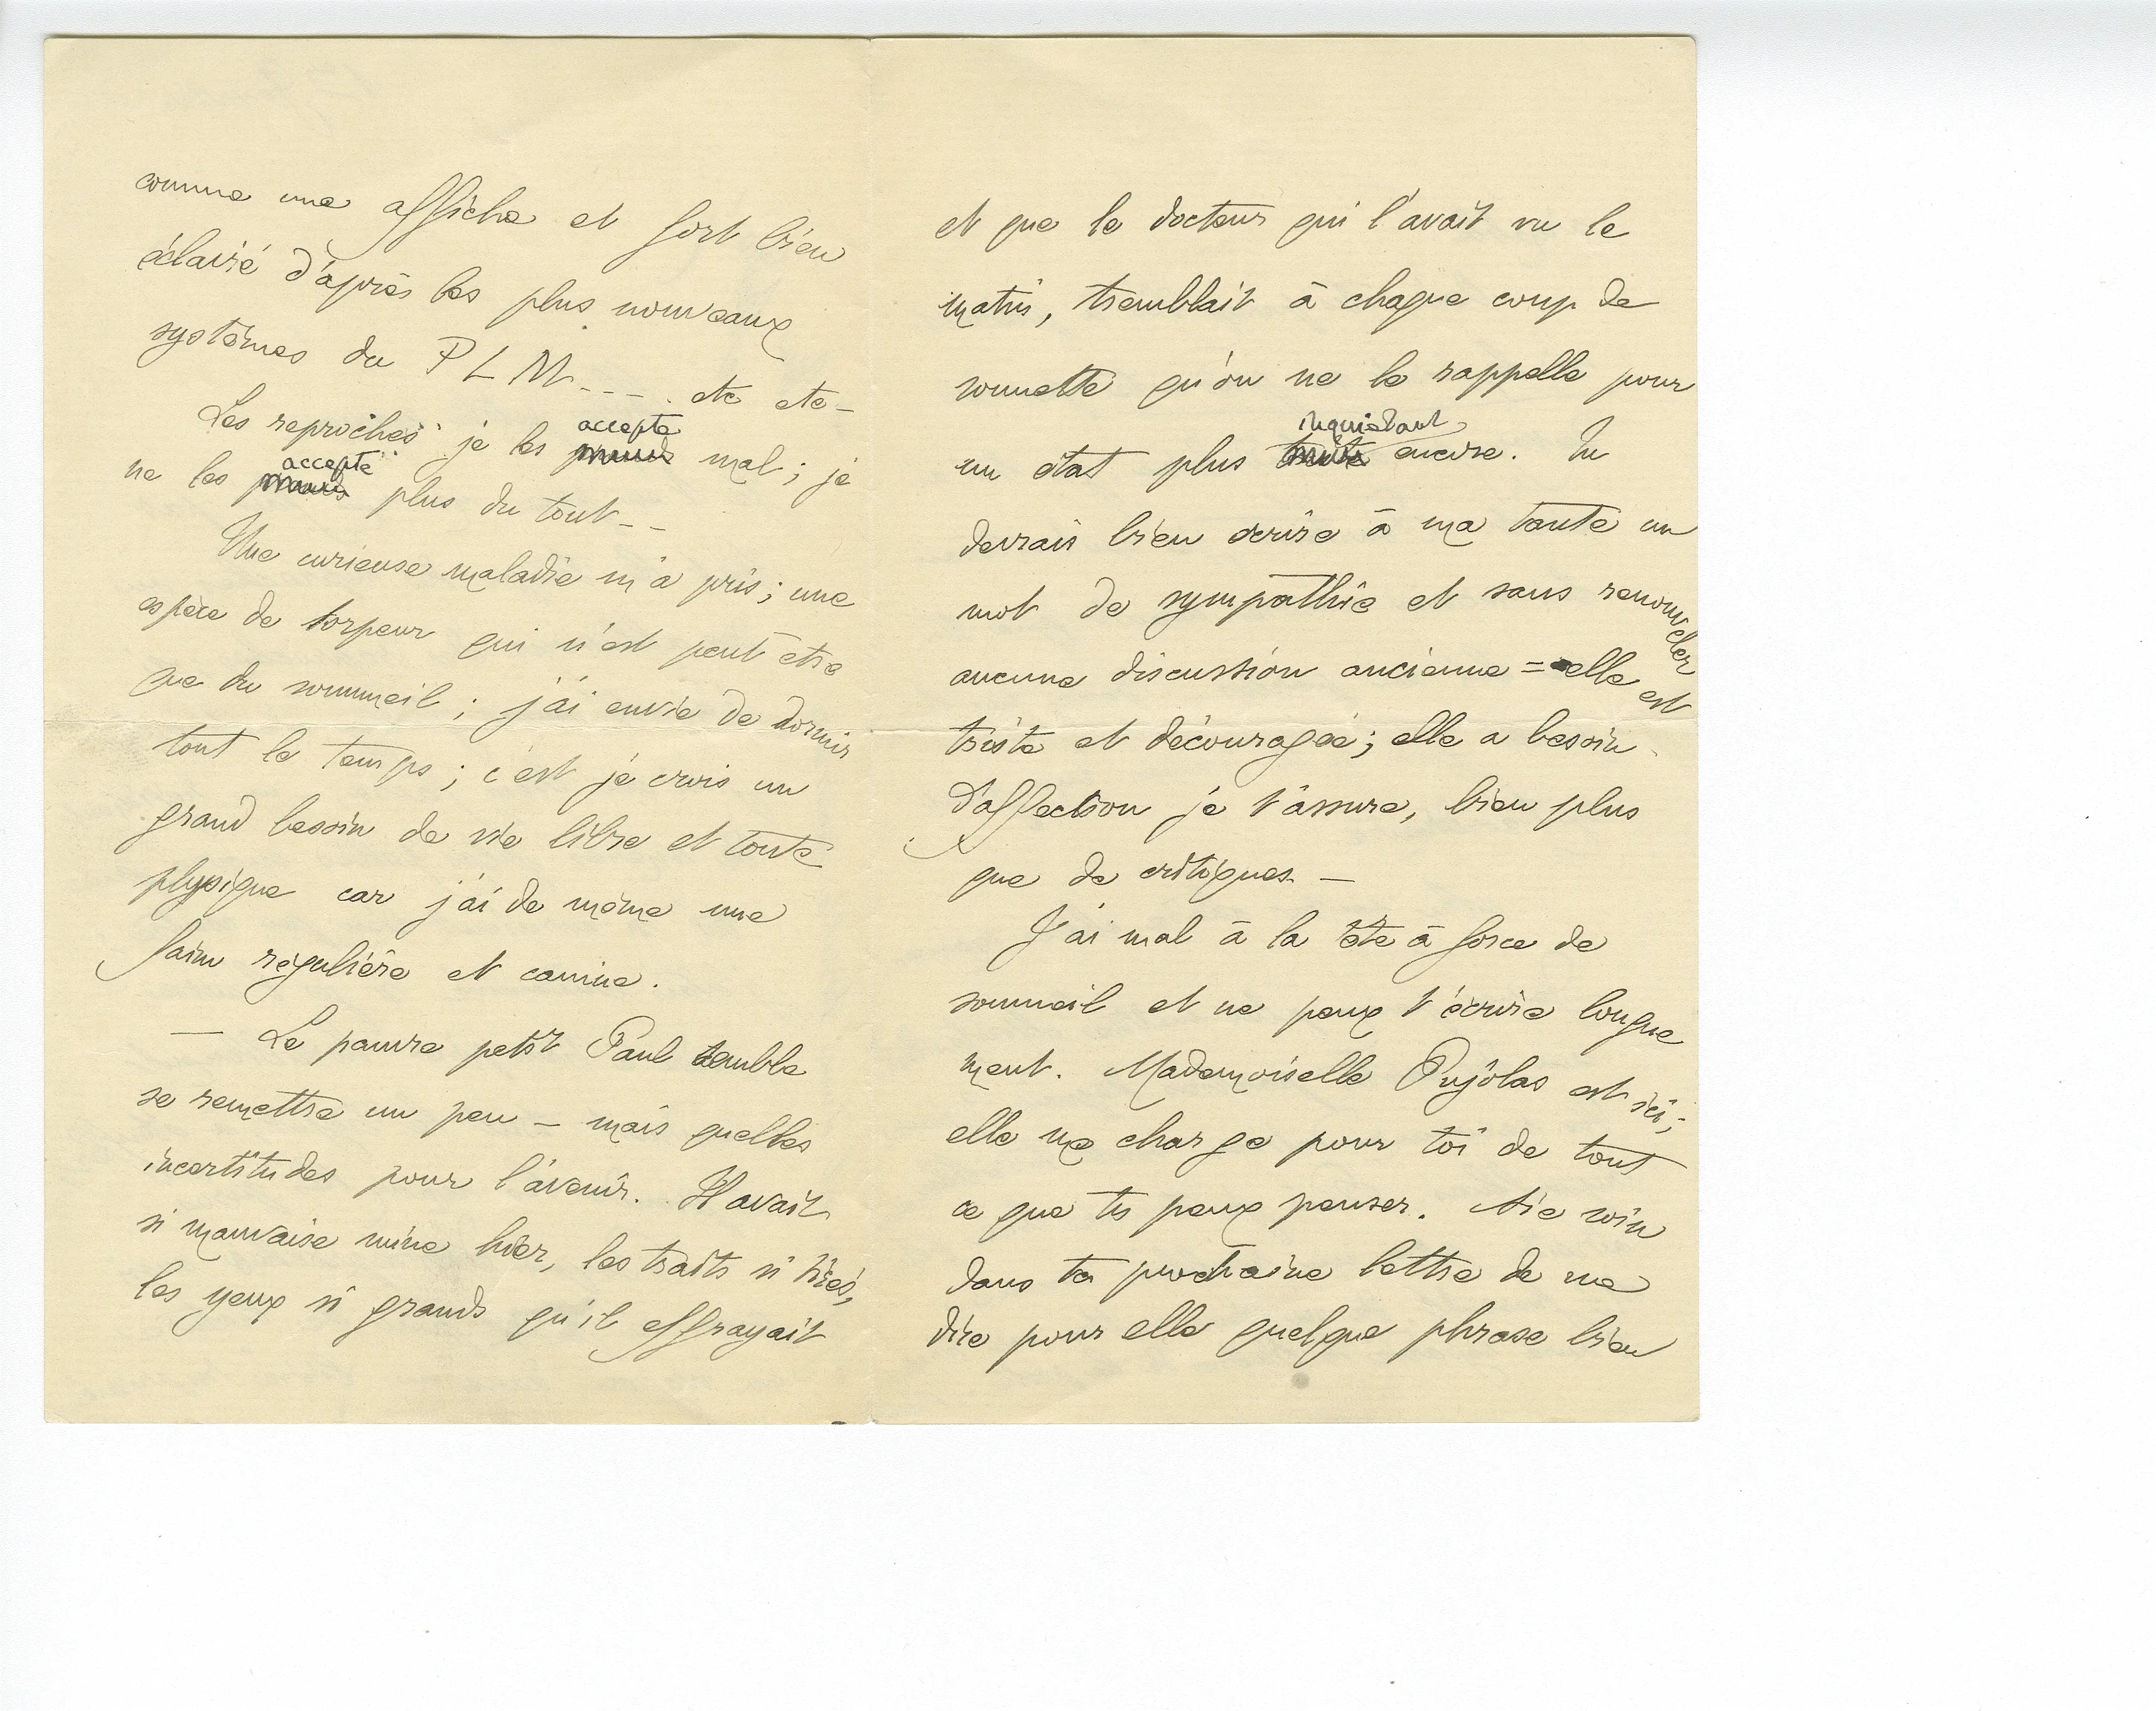 comme une affiche et fort bien
éclairé d'après les plus nouveaux
systèmes du P L M - - - . etc etc -
Les reproches je les accepte mal ; je
ne les accepte plus du tout - -
Une curieuse maladie m'a pris ; une
espèce de torpeur qui n'est peut être
que du sommeil ; j'ai envie de dormir
tout le temps ; c'est je crois un
grand besoin de vie libre et toute
physique car j'ai de même une
faim régulière et canine.
— Le pauvre petit Paul semble
se remettre un peu - mais quelles
incertitudes pour l'avenir. Il avait
si mauvaise mine hier, les traits si tirés,
les yeux si grands qu'il effrayait
et que le docteur qui l'avait vu le
matin, tremblait à chaque coup de
sonnette qu'on ne le rappelle pour
un état plus inquiétant encore. Tu
devrais bien écrire à ma tante un
mot de sympathie et sans renouveler
aucune discussion ancienne = elle est
triste et découragée ; elle a besoin
d'affection je t'assure, bien plus
que de critiques -
J'ai mal à la tête à force de
sommeil et ne peux t'écrire longue
ment. Mademoiselle Pujolas est ici ;
elle me charge pour toi de tout
ce que tu peux penser. Aie soin
dans ta prochaine lettre de me
dire pour elle quelque phrase bien